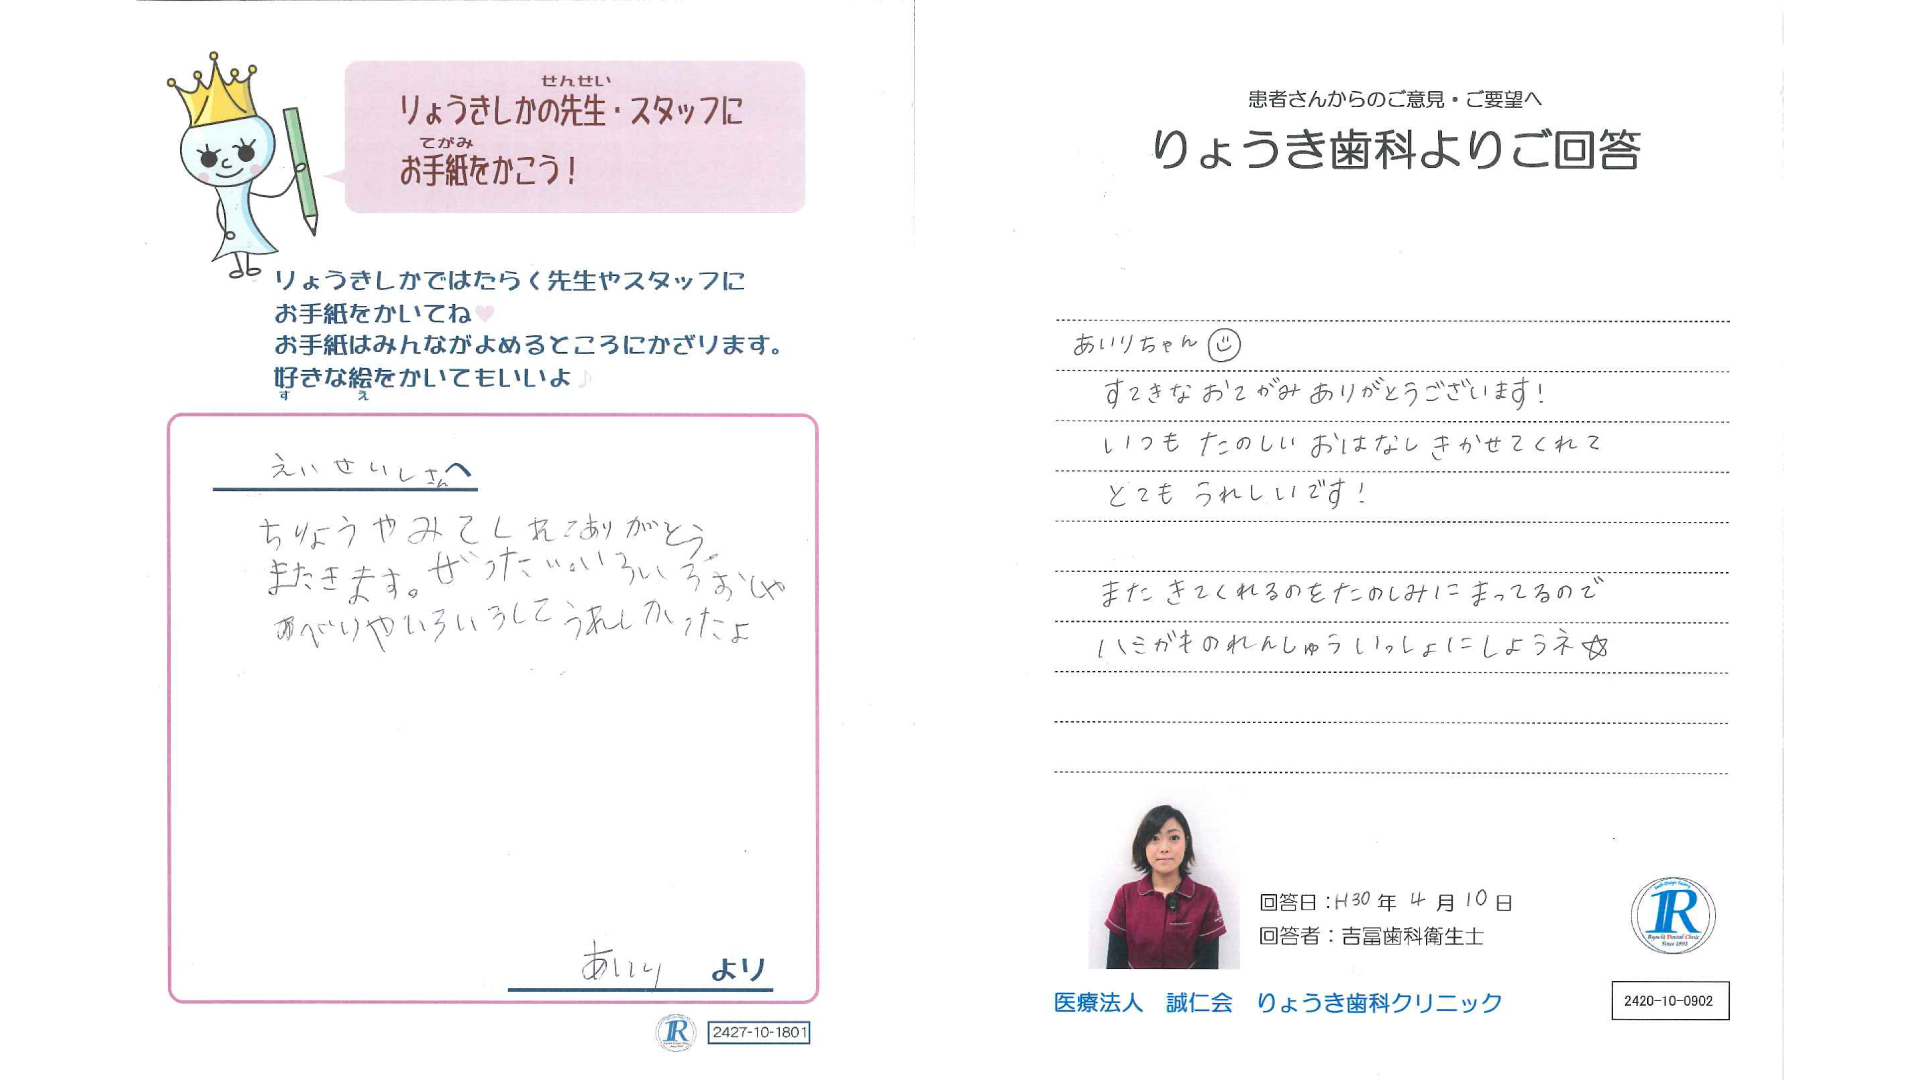 せんせい
りょうきしかの先生・スタッフに
てがみ
お手紙をかこう！
りょうきしかではたらく先生やスタッフに
お手紙をかいてね
お手紙はみんながよめるところにかざります。
好きな絵をかいてもいいよ♪
す え
えいせいしさんへ
ちりょうやみてくれてありがとう。
またきます。ぜったい。いろいろおしゃ
あべりやいろいろしてうれしかったよ
あいり より
2427-10-1801
患者さんからのご意見・ご要望へ
りょうき歯科よりご回答
あいりちゃん
すてきなおてがみありがとうございます！
いつもたのしいおはなしきかせてくれて
とてもうれしいです！
またきてくれるのをたのしみにまってるので
ハミガキのれんしゅういっしょにしようネ☆
回答日：H30年 4月 10日
回答者：吉冨歯科衛生士
R
Ryouki Dental Clinic
Since 1993
医療法人　誠仁会　りょうき歯科クリニック
2420-10-0902